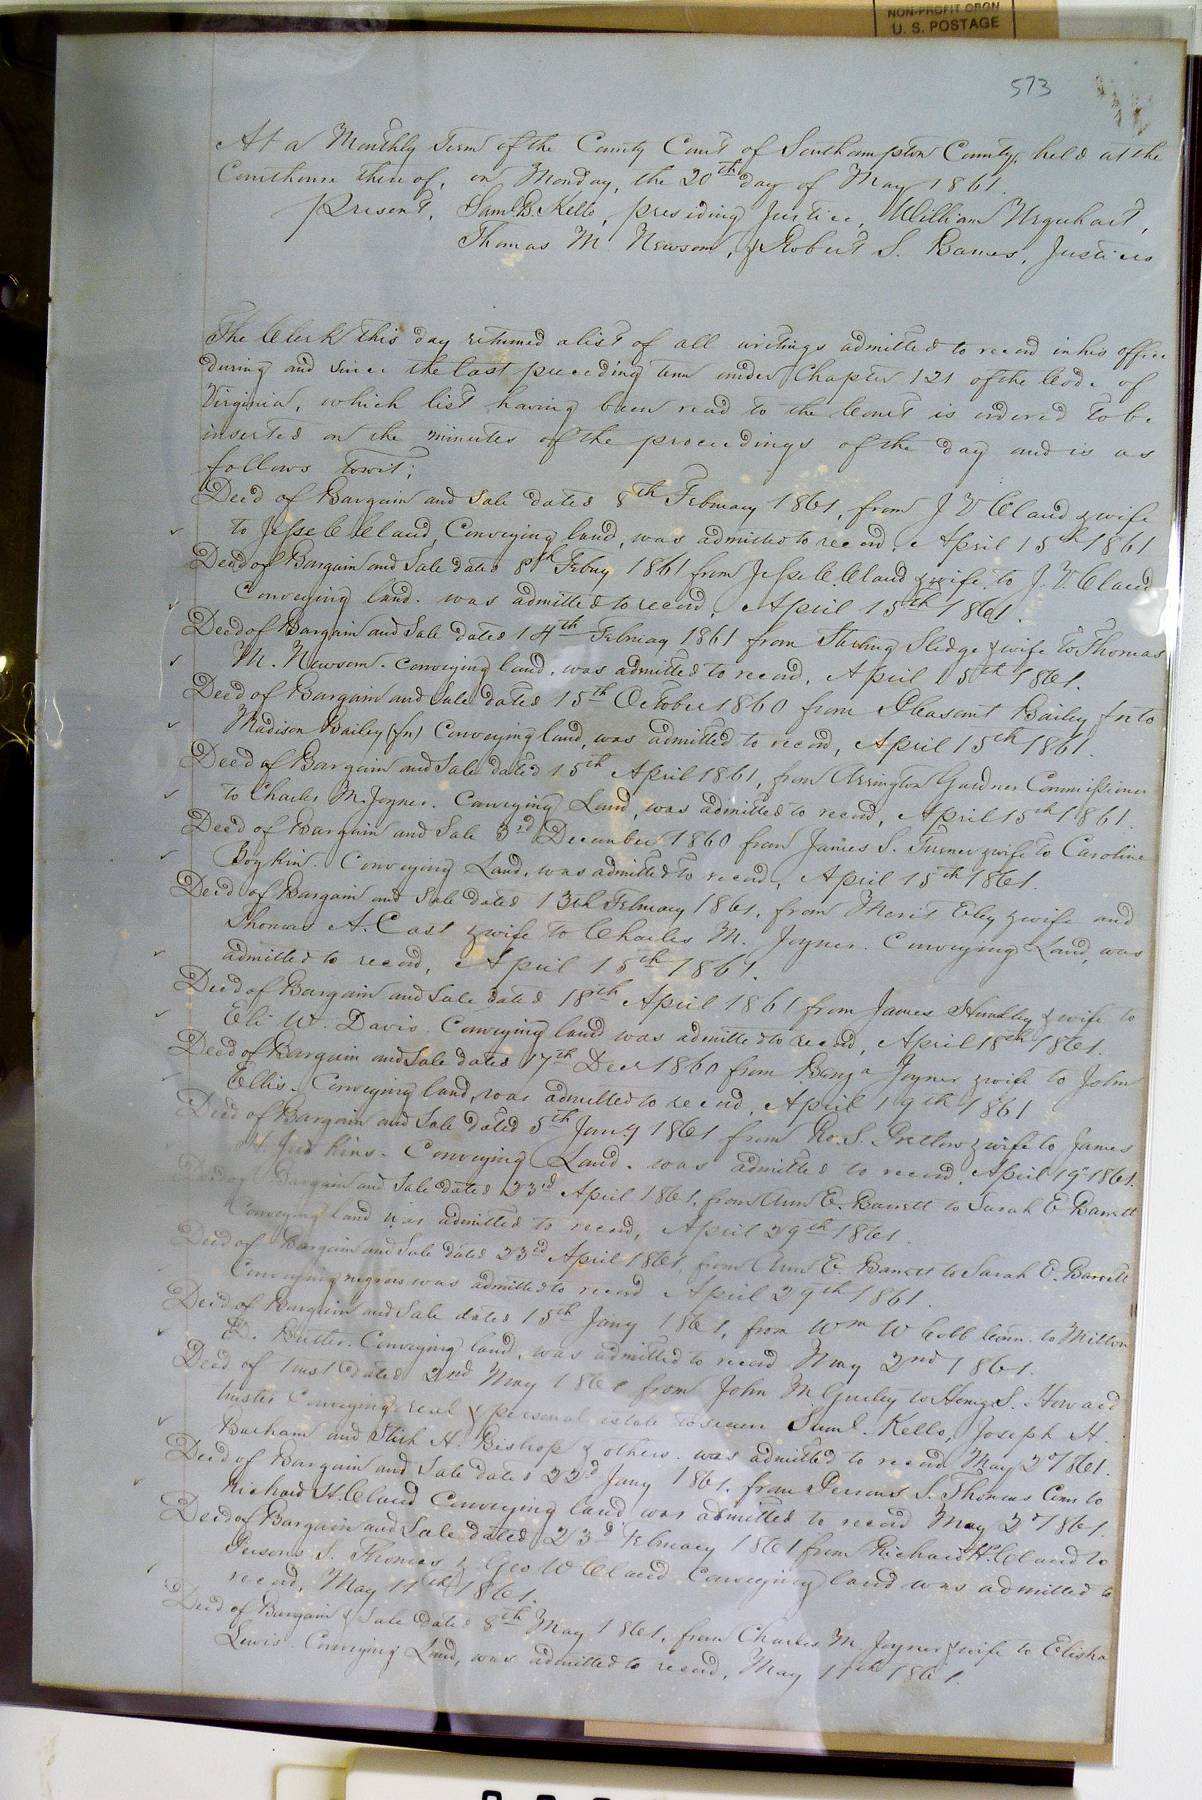 NON-PROFIT ORGN
U. S. POSTAGE
573
At a Monthly Term of the County Court of Southampton County, held at the
Courthouse thereof, on Monday, the 20th day of May 1861.
Present, Saml B. Kello, presiding Justice, William Urquhart,
Thomas M. Newsom, & Robert S. Barnes, Justices
The Clerk this day returned a list of all writings admitted to record in his office
during and since the last preceeding term under Chapter 121 of the Code of
Virginia, which list having been read to the Court is ordered to be
inserted on the minutes of the proceedings of the day and is as
follows towit;
Deed of Bargain and Sale dated 8th February 1861, from J V Claud & wife
to Jesse C Claud, Conveying land, was admitted to record, April 15th 1861
Deed of Bargain and Sale dated 8th Feby 1861 from Jesse C. Claud & wife to J. V. Claud
Conveying land. was admitted to record, April 15th 1861.
Deed of Bargain and Sale dated 14th February 1861 from Sterling Sledge & wife to Thomas
M. Newsom. conveying land. was admitted to record, April 15th 1861.
Deed of Bargain and Sale dated 15th October 1860 from Pleasant Bailey fn to
Madison Bailey (fn) Conveying land, was admitted to record, April 15th 1861.
Deed of Bargain and Sale dated 15th April 1861, from Arrington Gardner Commissioner
to Charles M. Joyner. Conveying Land, was admitted to record, April 15th 1861.
Deed of Bargain and Sale 3rd December 1860 from James S. Turner & wife to Caroline
Boykin. Conveying Land, was admitted to record, April 15th 1861.
Deed of Bargain and Sale dated 13th February 1861, from Merit Eley & wife and
Thomas A. East & wife to Charles M. Joyner. Conveying Land, was
admitted to record, April 15th 1861.
Deed of Bargain and Sale dated 18th April 1861 from James Hundley & wife to
Eli W. Davis. Conveying land was admitted to record, April 18th 1861.
Deed of Bargain and Sale dated 17th Decr 1860 from Benja Joyner & wife to John
Ellis. Conveying land, was admitted to record, April 19th 1861
Deed of Bargain and Sale dated 5th Jany 1861 from Ro. S. Pretlow & wife to James
H. Judkins. Conveying Land. was admitted to record, April 19th 1861.
Deed of Bargain and Sale dated 23rd April 1861, from Ann E. Barrett to Sarah E Barrett
Conveying land was admitted to record, April 29th 1861.
Deed of Bargain and Sale dated 23rd April 1861, from Ann E. Barrett to Sarah E. Barrett
Conveying negroes was admitted to record April 29th 1861.
Deed of Bargain and Sale dated 15th Jany 1861, from Wm W Cobb Comr. to Milton
D. Butler. Conveying land, was admitted to record May 2nd 1861.
Deed of trust dated 2nd May 1861 from John M Gurley to Henry S. Howard
trustee Conveying real & personal estate to secure Saml. Kello, Joseph H.
Barham and Stith H. Bishop & others. was admitted to record May 2d 1861.
Deed of Bargain and Sale dated 22d Jany 1861. from Persons S. Thomas Comr to
Richard H. Claud Conveying land was admitted to record May 2d 1861.
Deed of Bargain and Sale dated 23d February 1861 from Richard H. Claud to
Persons S. Thomas & Geo W Claud Conveying land was admitted to
record, May 11th 1861.
Deed of Bargain & Sale dated 8th May 1861, from Charles M. Joyner & wife to Elisha
Lewis. Conveying Land, was admitted to record, May 11th 1861.